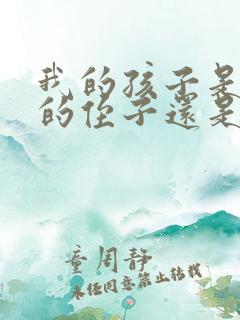 我的孩子是
的侄子還是
童周静
未任同意禁止转载